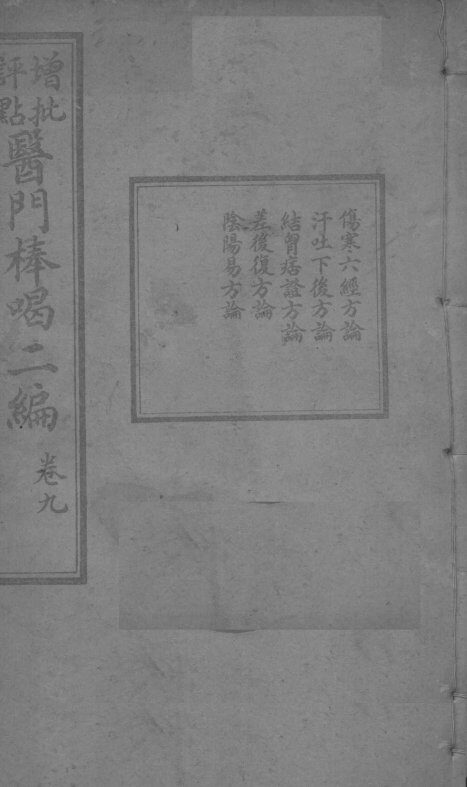 增批
評點
醫門棒喝二編
卷九
傷寒六經方論
汗吐下後方論
結胷痞證方論
差後復方論
陰陽易方論